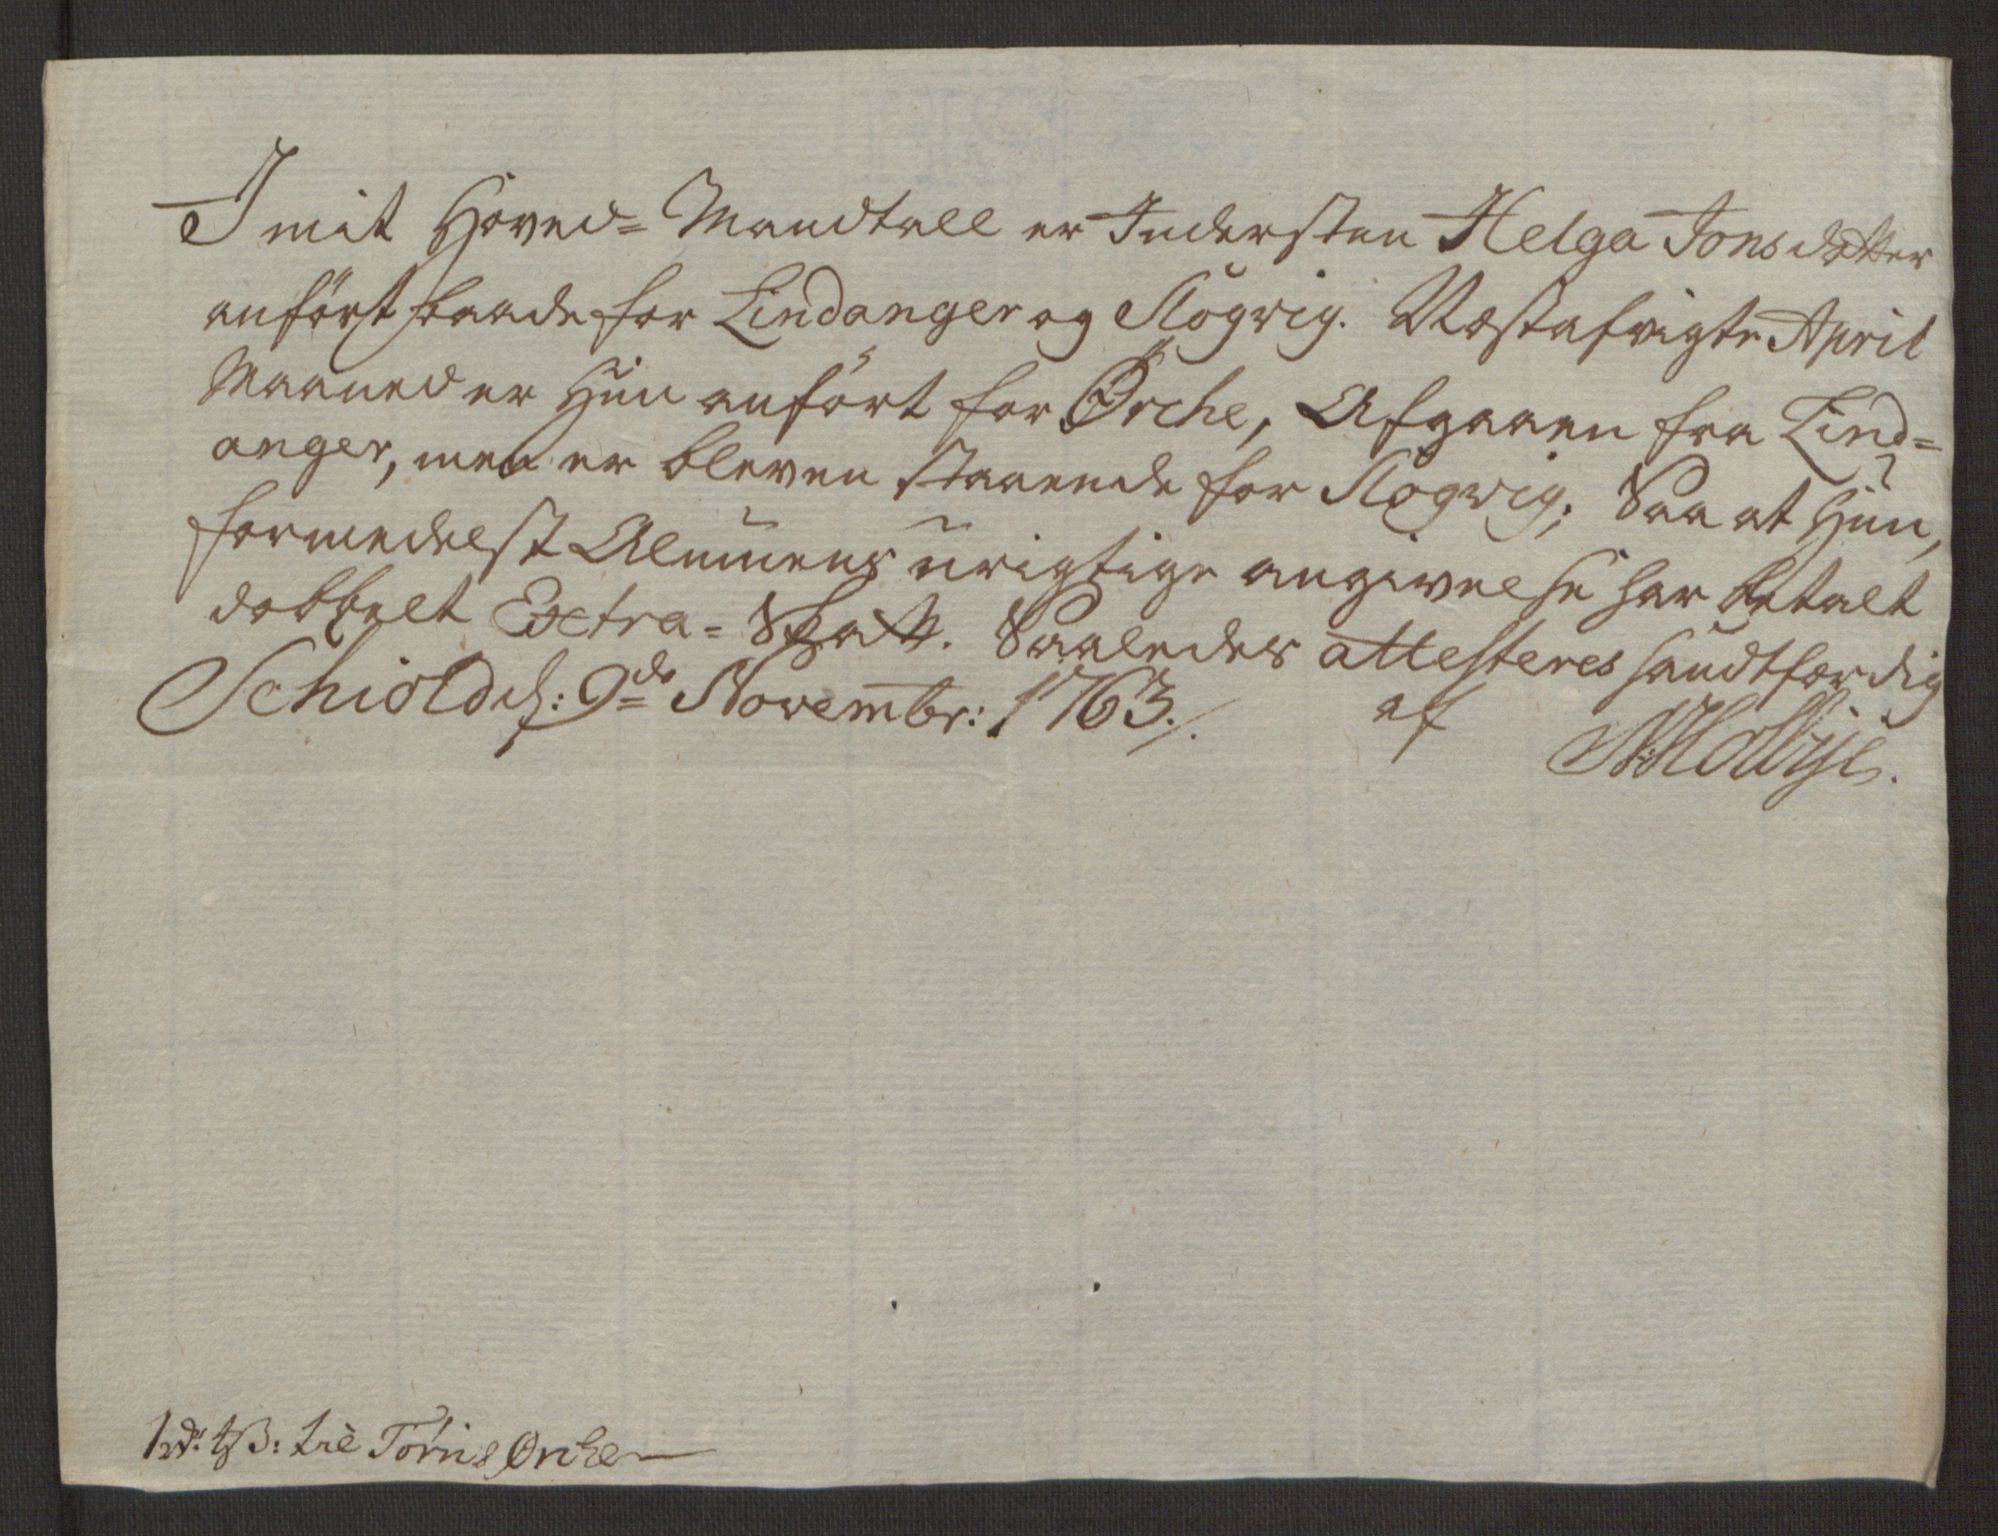 I mit Hoved= Mandtall er Indersten Helga Jonsdatter
anført baade for Lindanger og Nøgvig. Næstafvigte April
Maaned er Hun anført for Ørche, Afgaaen fra Lind=
anger, men er bleven staaende for Nøgvig; Saa at Hun,
formedelst Almuens urigtige angivelse har betalt
dobbelt Extra= Skatt. Saaledes attesteres sandfærdig
Schiold d: 9de Novembr: 1763./. af
1rd: 4ß: til Ørche